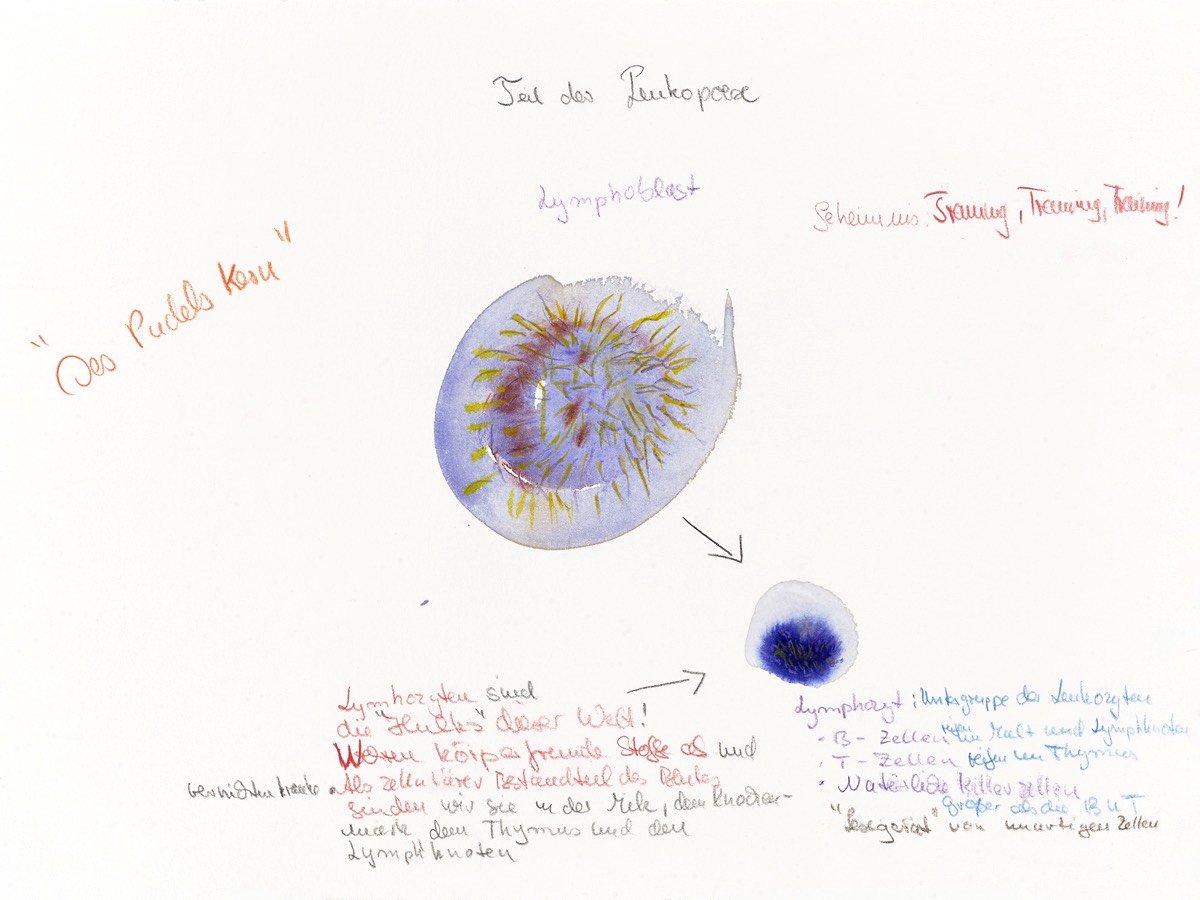 Teil der Leukopoese
Lymphoblast
Geheimnis: Training, Training, Training!
"Des Pudels Kern"
Lymphozyten sind
die "Hulks" dieser Welt!
körperfremde Stoffe ab und
vernichten kranke
Als zellulärer Bestandteil des Blutes
finden wir sie in der Milz, dem Knochen-
mark, dem Thymus und den
Lymphknoten
Lymphozyt: Untergruppe der Leukozyten
· B-Zellen reifen im Malt und Lymphknoten
· T-Zellen reifen im Thymus
· Natürliche Killerzellen
größer als die B u T
von unartigen Zellen